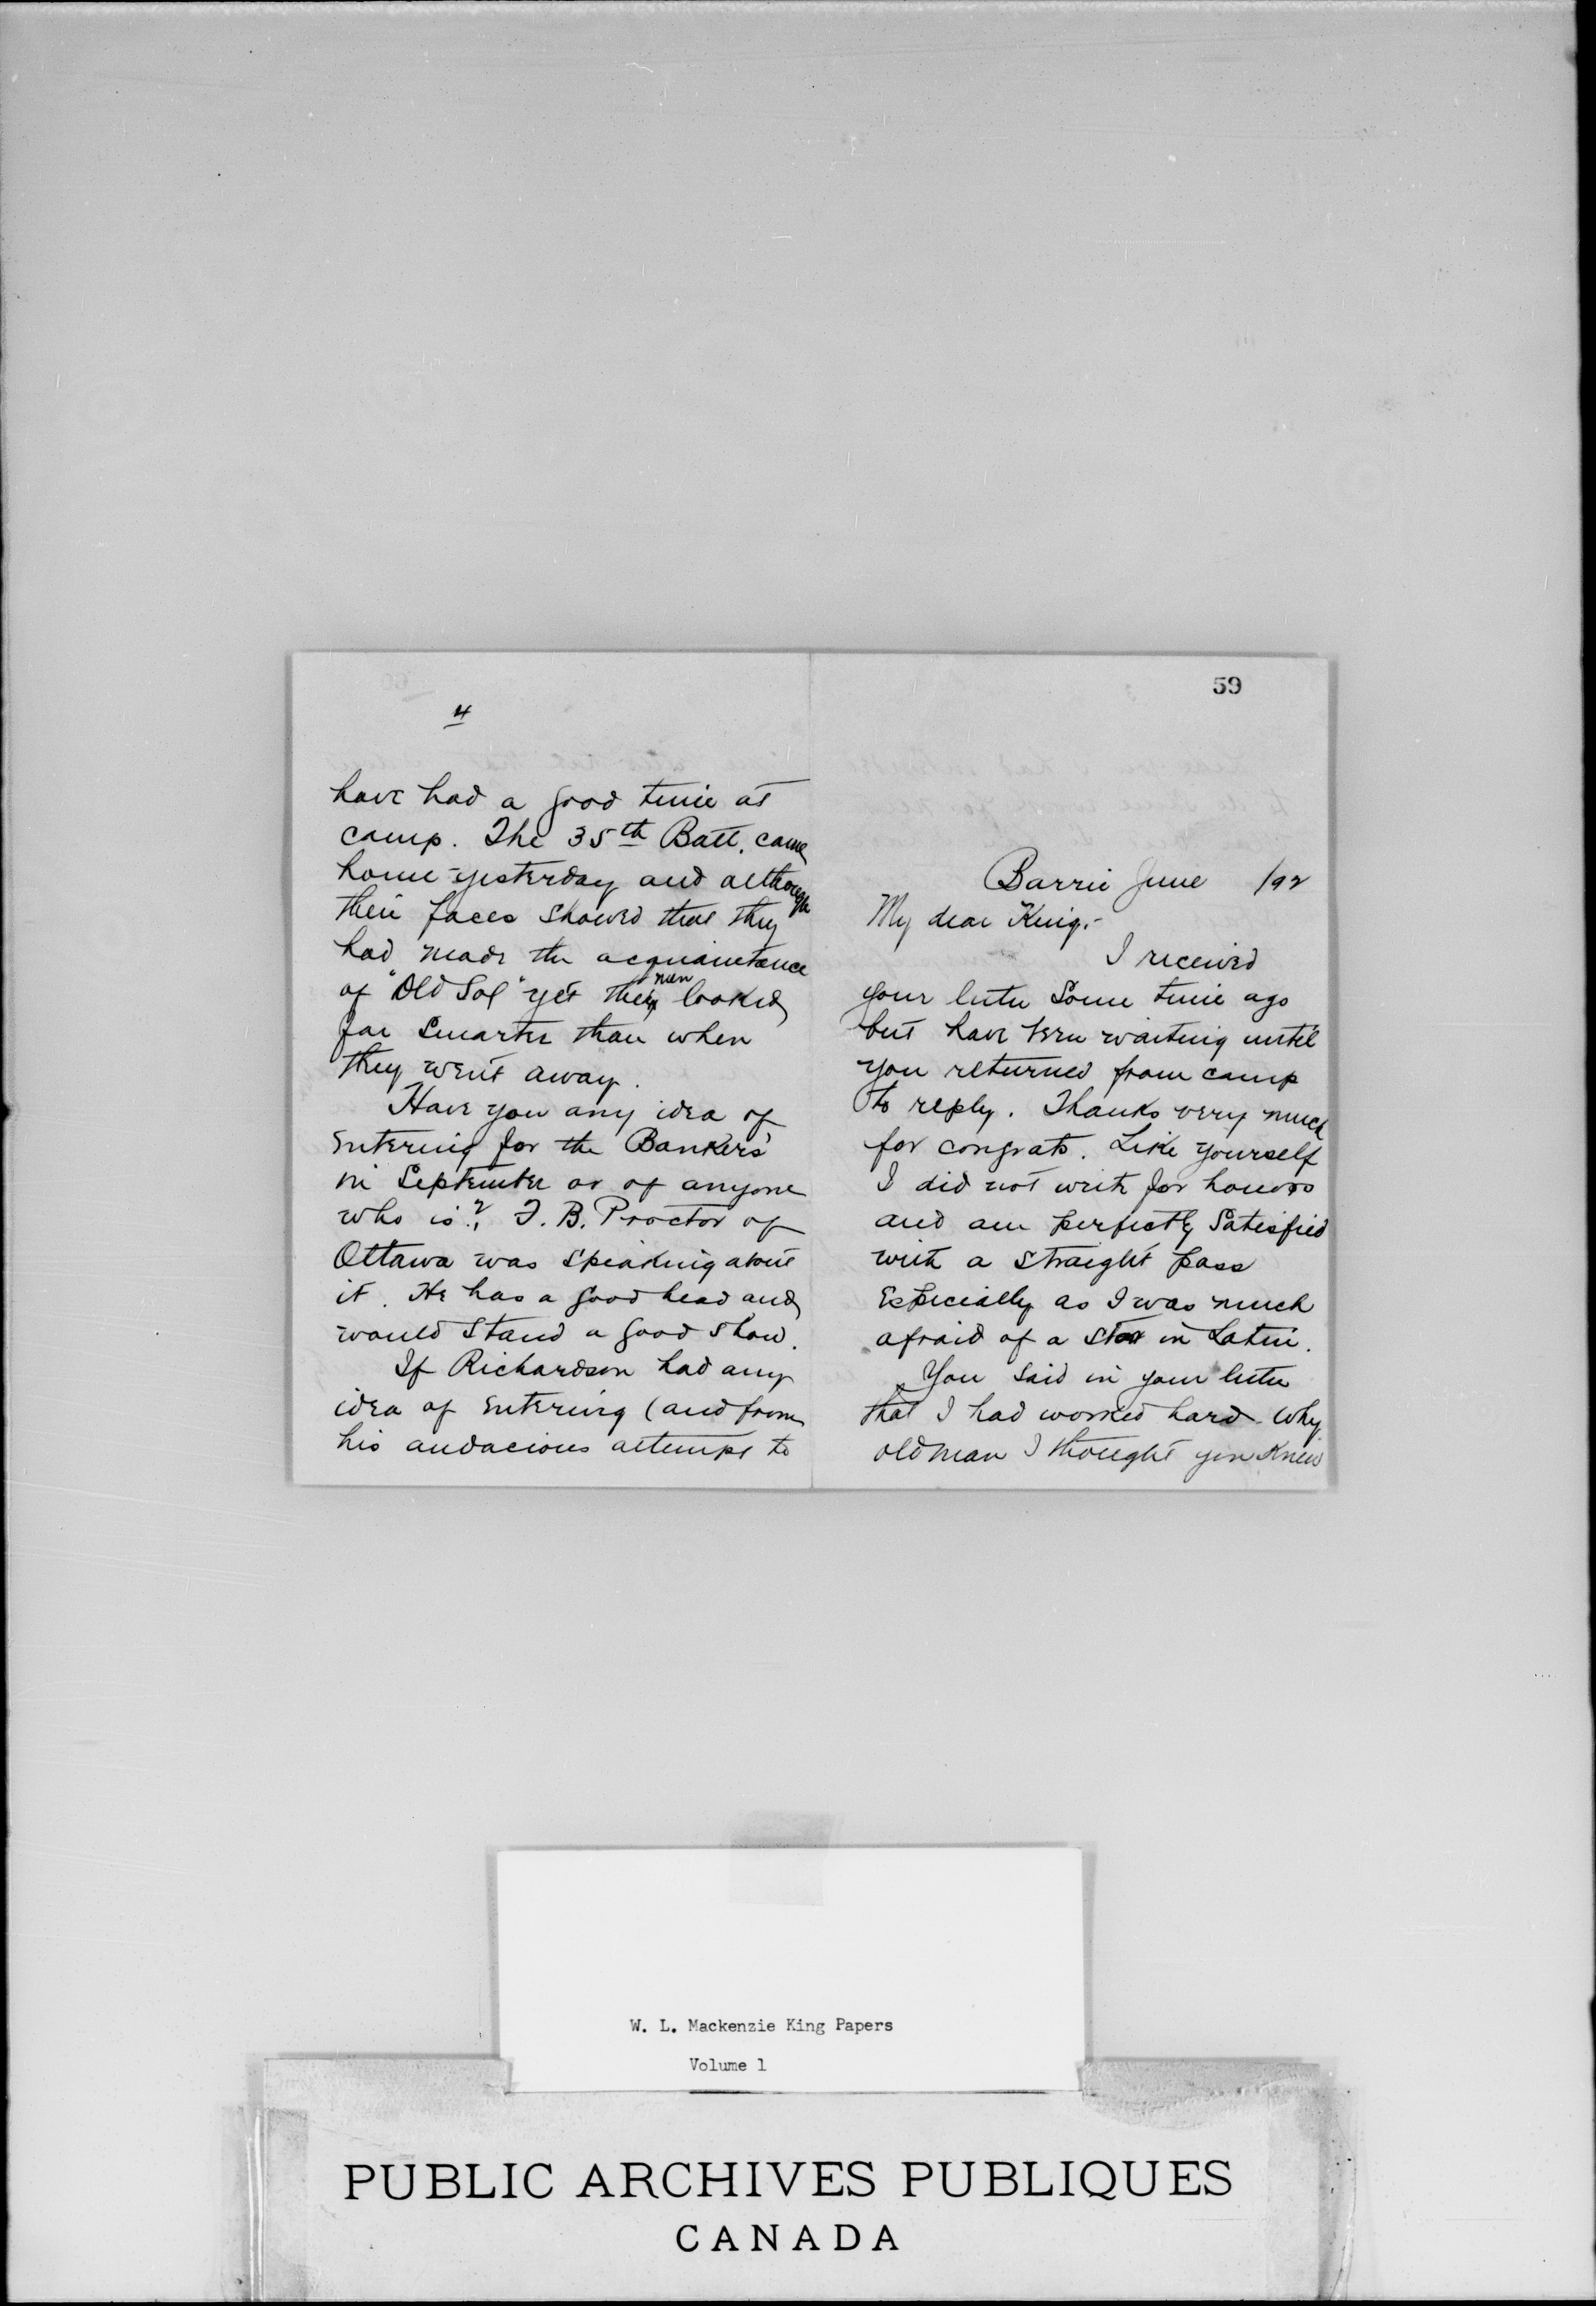 4
have had a good time at
camp. The 35th Batt. came
home yesterday and although
their faces showed that they
had made the acquaintance
of "Old Sol" yet their men looked
far smarter than when
they went away.
Have you any idea of
entering for the Bankers'
in September or of anyone
who is? F. B. Proctor of
Ottawa was speaking about
it. He has a good head and
would stand a good show.
If Richardson had any
idea of entering (and from
his audacious attempt to
59
Barrie June /92
My dear King:-
I received
your letter some time ago
but have been waiting until
you returned from camp
to reply. Thanks very much
for congrats. Like yourself
I did not write for honors
and am perfectly satisfied
with a straight pass
especially as I was much
afraid of a star in Latin.
You said in your letter
that I had worked hard - Why
old man I thought you knew
W. L. Mackenzie King Papers
Volume 1
PUBLIC ARCHIVES PUBLIQUES
CANADA